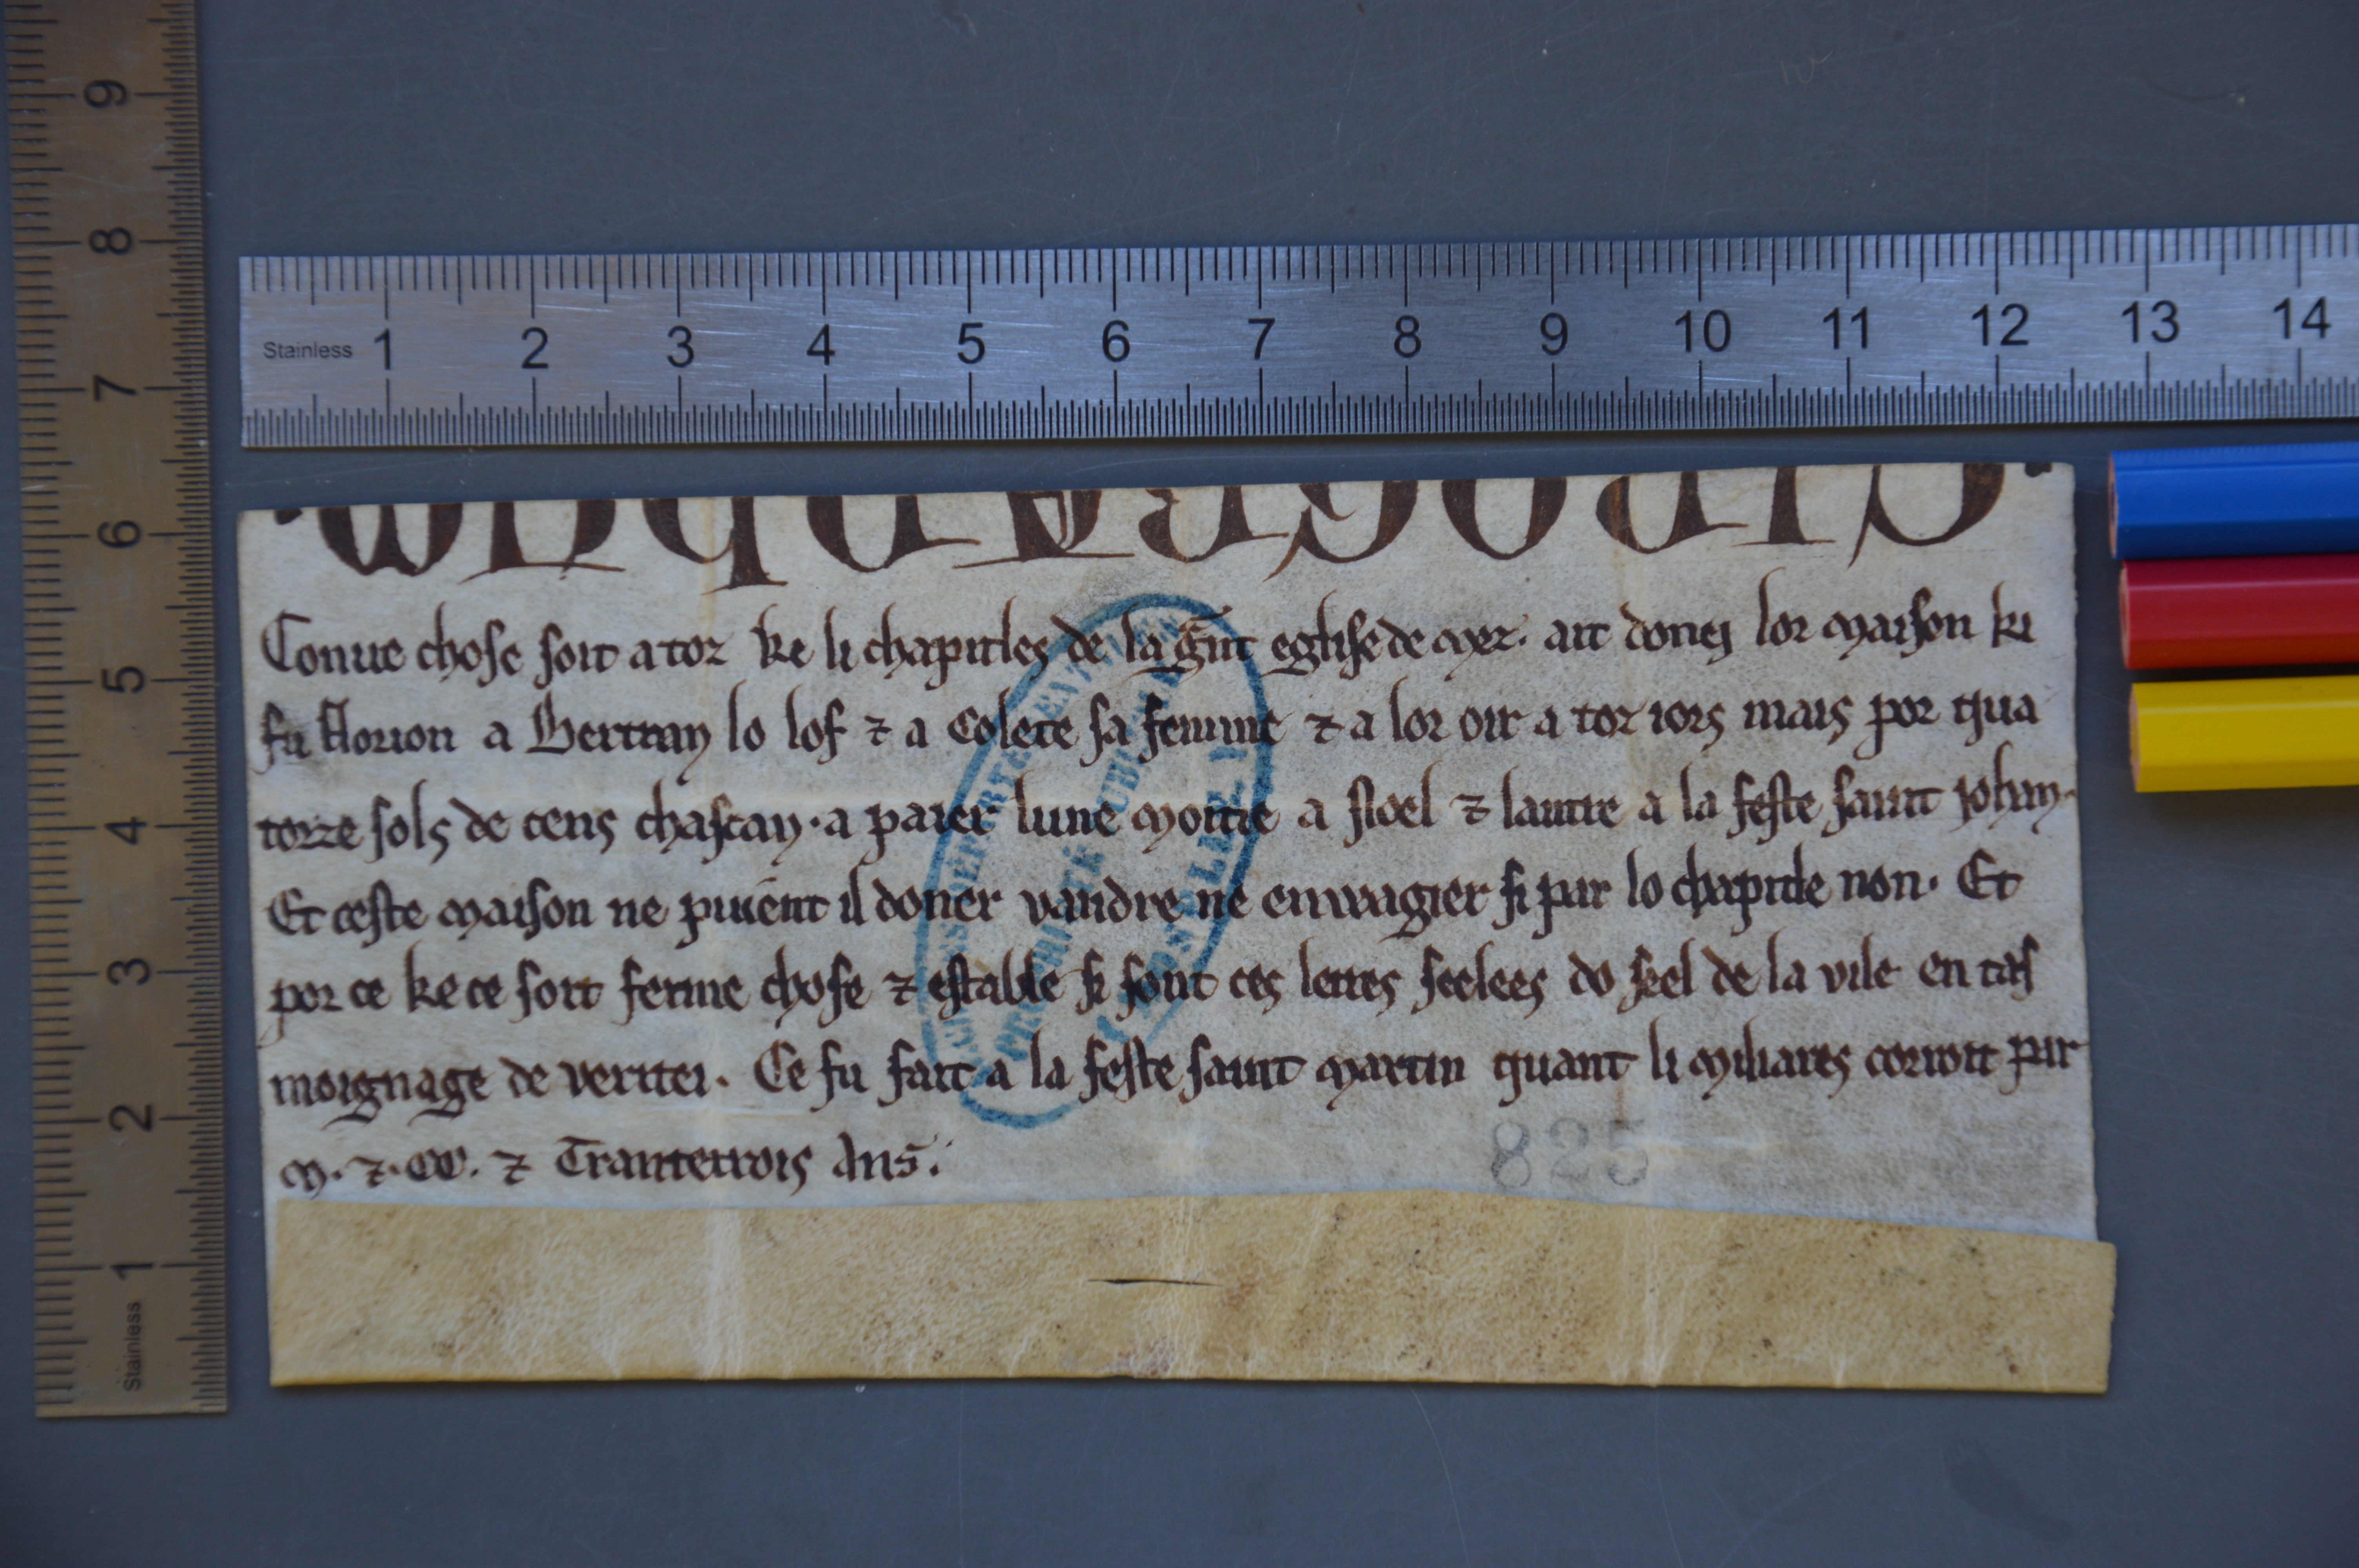 9
8
7
6
5
4
3
2
1
Stainless
Stainless 1 2 3 4 5 6 7 8 9 10 11 12 13 14
CIROGRAPHUM
Conue chose soit a toz ke li chapitles de la g̃nt eglise de mez · ait donei lor maison ki
fu Florion a Bertran lo lof ⁊ a Colete sa femme ⁊ a lor oir a toz iors mais por qua
torze sols de cens chascan · a paier lune moitie a Noel ⁊ lautre a la feste saint Johan ·
Et ceste maison ne puient il doner vandre ne enwagier si par lo chapitle non · Et
por ce ke ce soit ferme chose ⁊ estable si sont ces lettres seelees do seel de la vile en tes
moignage de veritei · Ce fu fait a la feste saint Martin quant li miliares corroit par
M · ⁊ · CC · ⁊ Trantetrois Ans ·
825